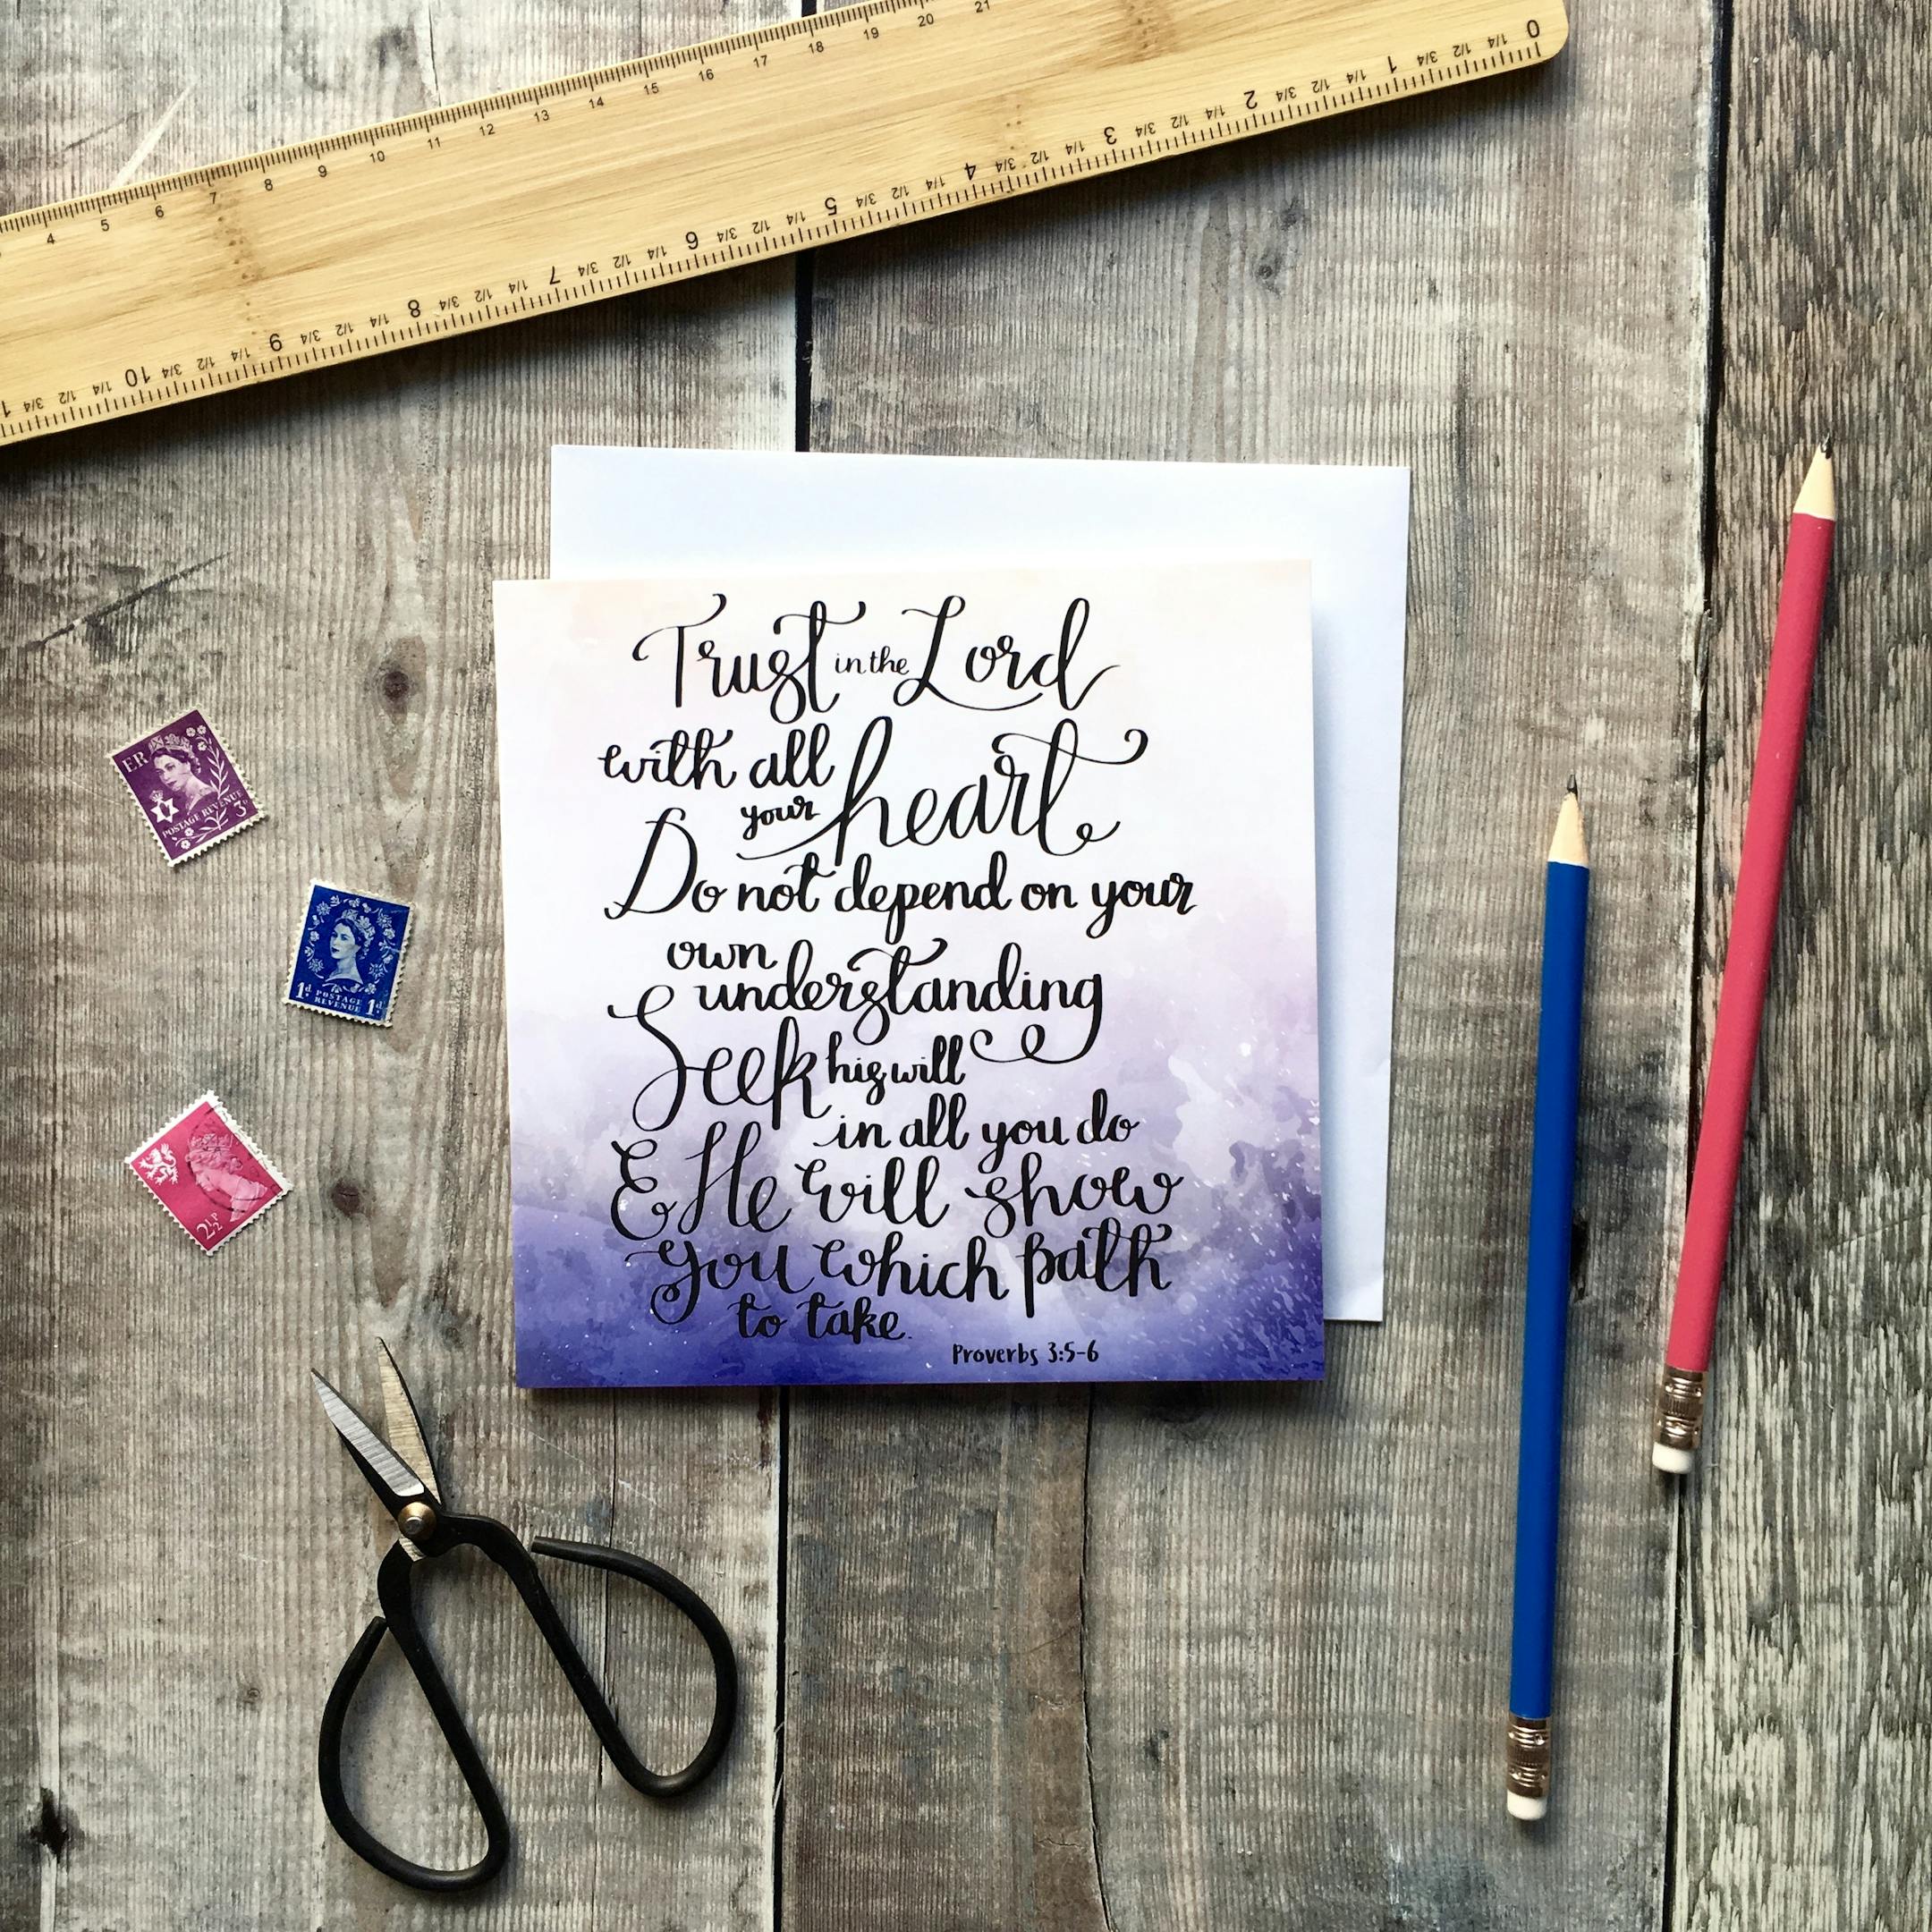 4 5 6 7 8 9 10 11 12 13 14 15 16 17 18 19 20 21
0 1/4 1/2 3/4 1 1/4 1/2 3/4 2 1/4 1/2 3/4 3 1/4 1/2 3/4 4 1/4 1/2 3/4 5 1/4 1/2 3/4 6 1/4 1/2 3/4 7 1/4 1/2 3/4 8 1/4 1/2 3/4 9 1/4 1/2 3/4 10 1/4 1/2 3/4 1
Trust in the Lord
with all
your heart
Do not depend on your
own
understanding
Seek his will
in all you do
& He will show
you which path
to take.
Proverbs 3:5-6
ER
POSTAGE REVENUE
3d
1d POSTAGE 1d
REVENUE
2½P